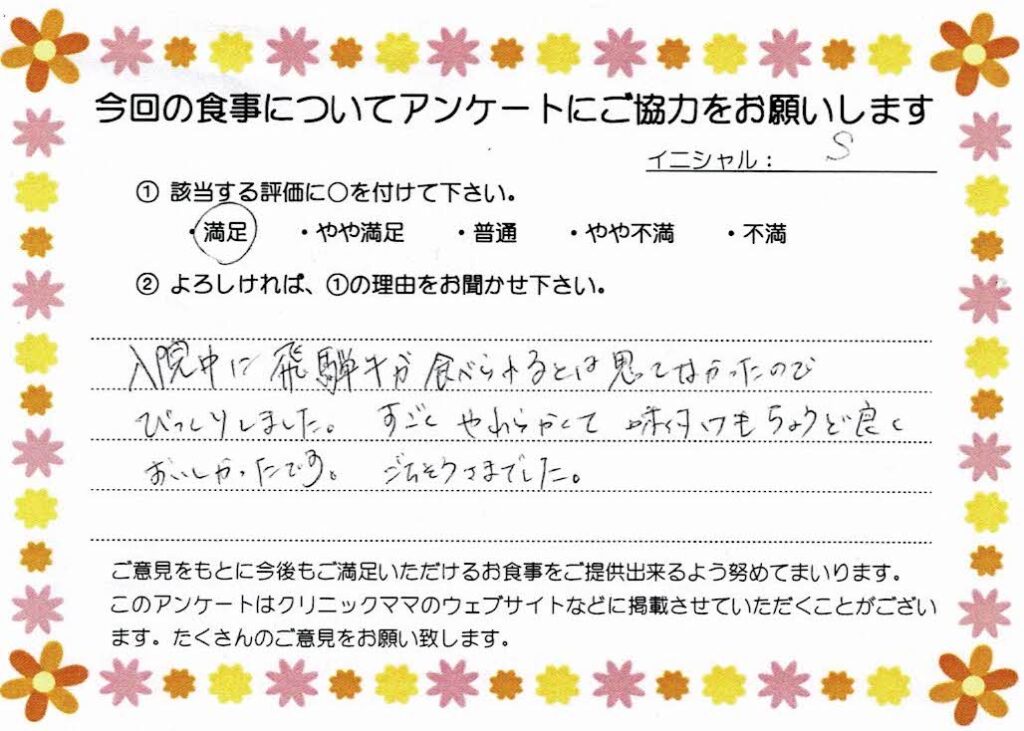 今回の食事についてアンケートにご協力をお願いします
イニシャル： S
① 該当する評価に○を付けて下さい。
・満足 ・やや満足 ・普通 ・やや不満 ・不満
② よろしければ、①の理由をお聞かせ下さい。
入院中に飛騨牛が食べられるとは思ってなかったので
びっくりしました。 すごくやわらかくて味付けもちょうど良く
おいしかったです。 ごちそうさまでした。
ご意見をもとに今後もご満足いただけるお食事をご提供出来るよう努めてまいります。
このアンケートはクリニックママのウェブサイトなどに掲載させていただくことがござい
ます。たくさんのご意見をお願い致します。